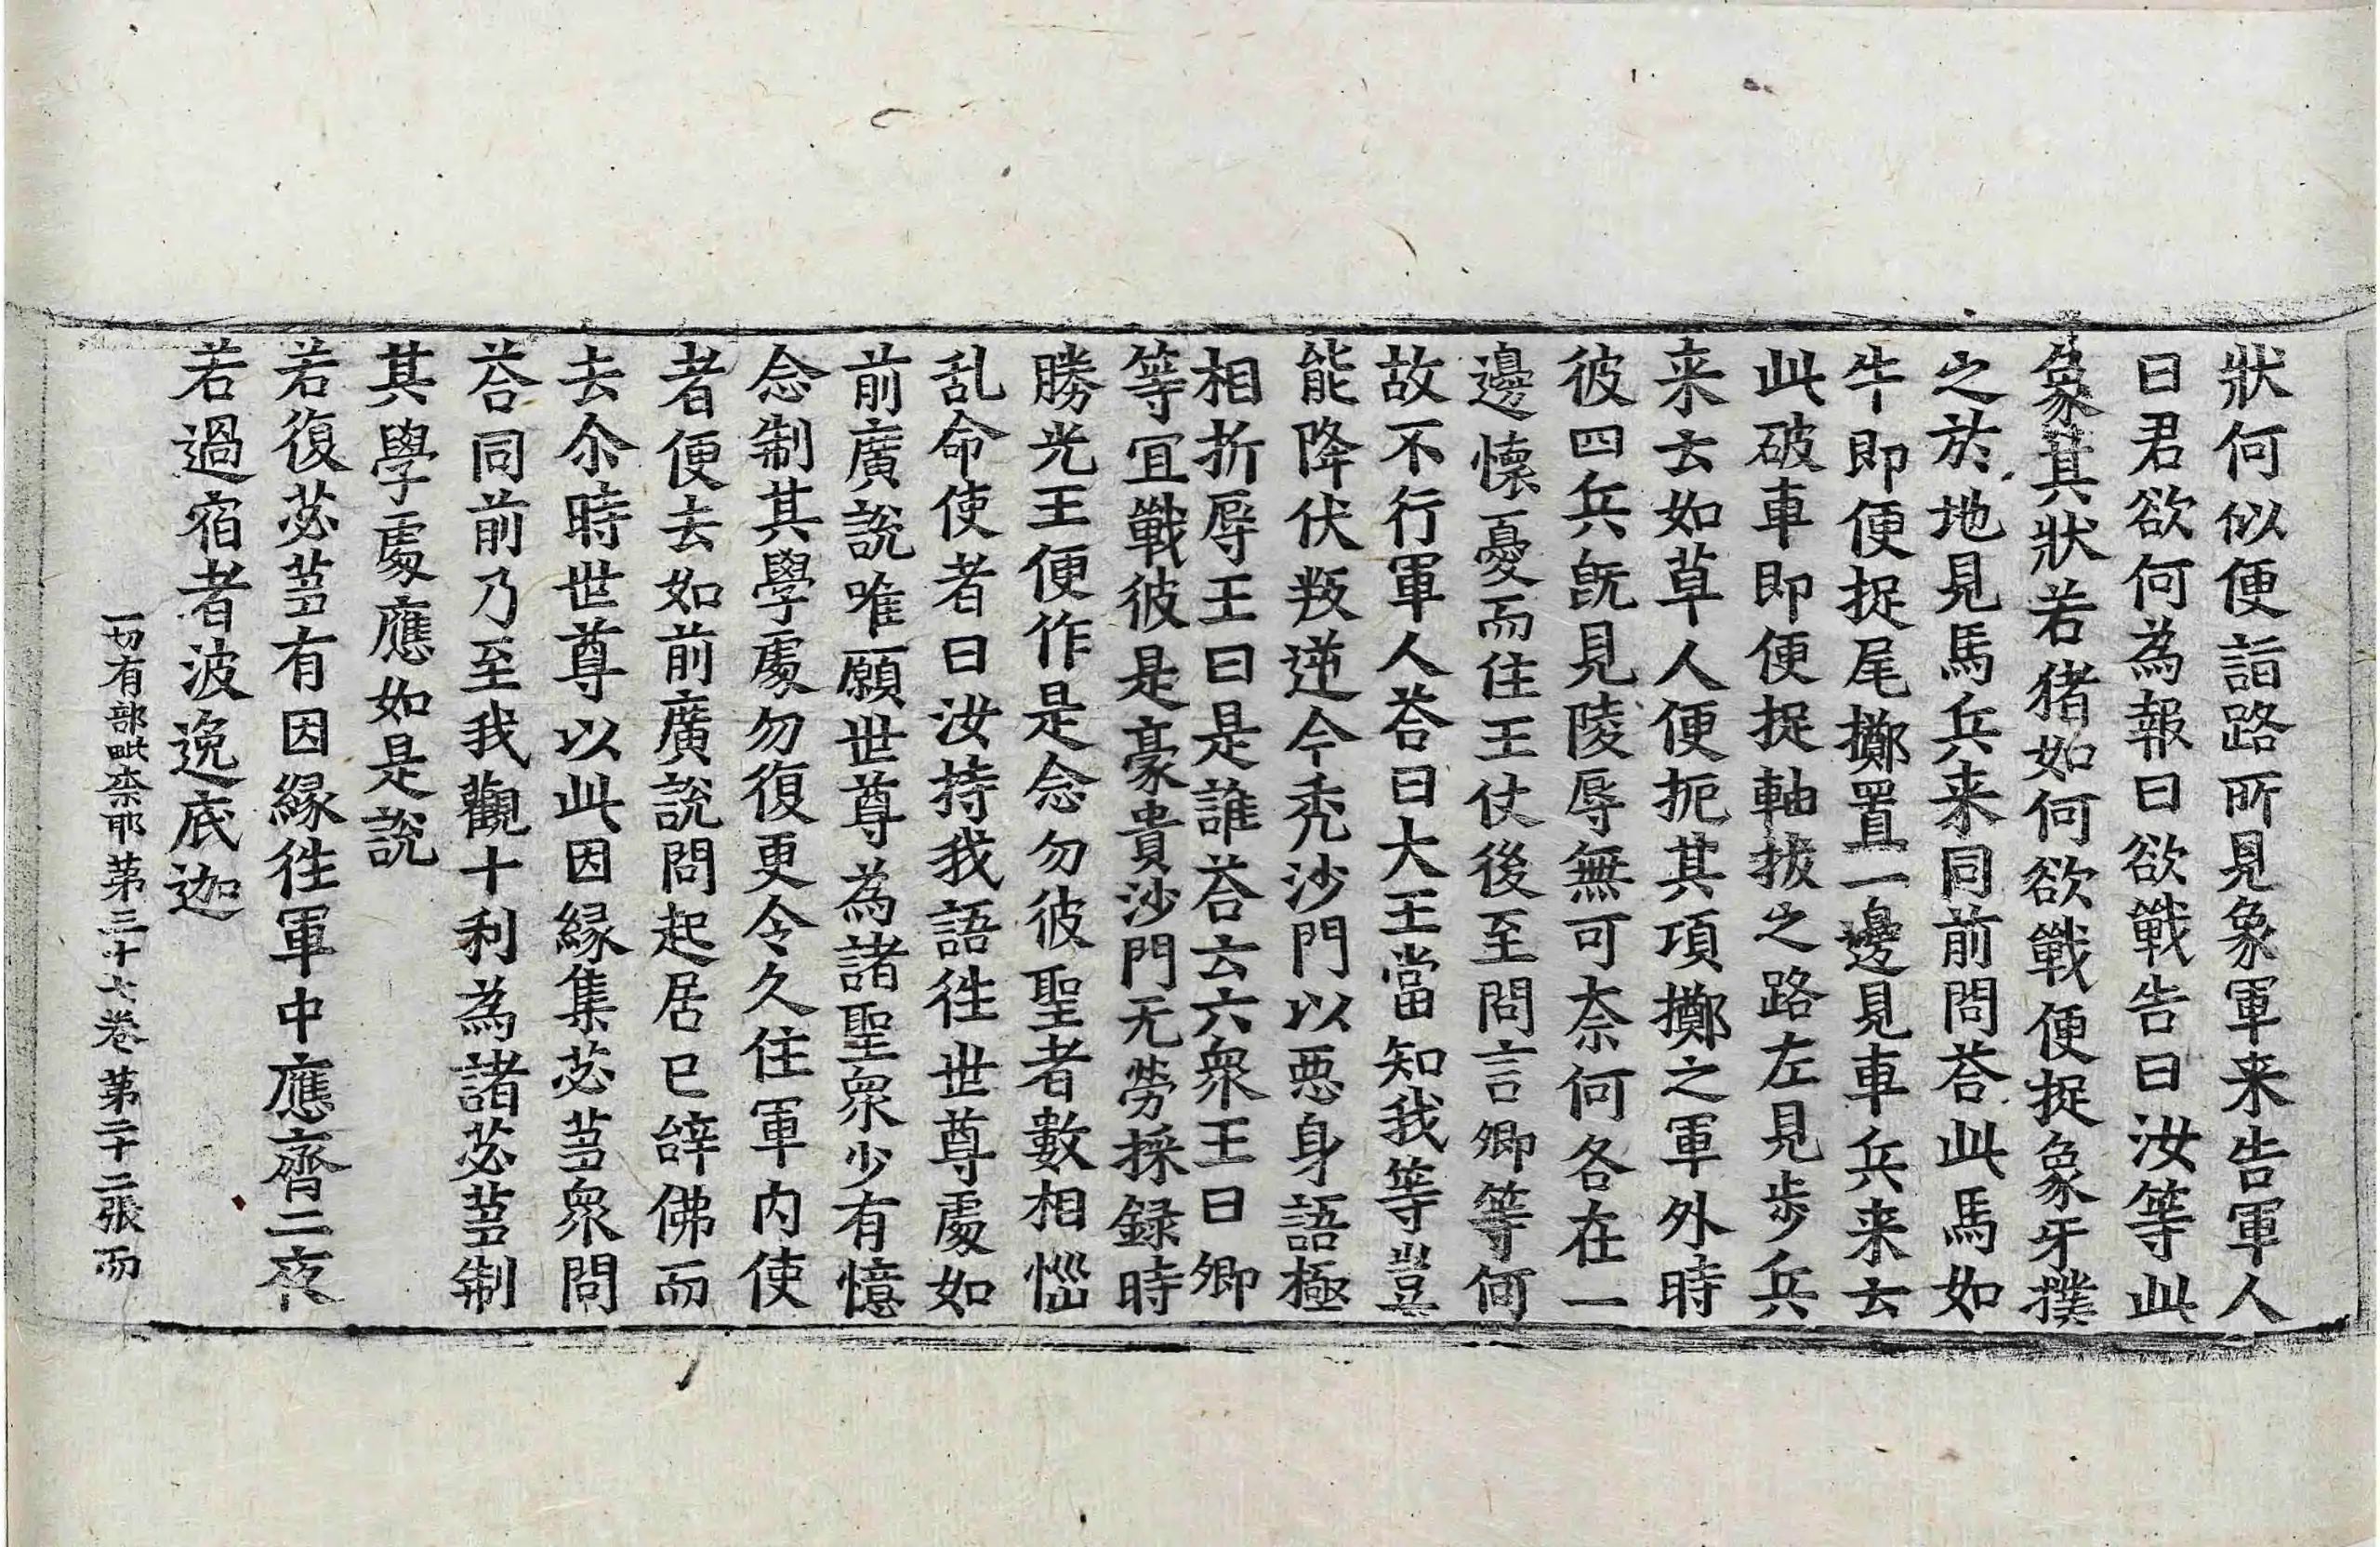 狀何似便詣路所見象軍来告軍人
曰君欲何為報曰欲戰告曰汝等此
象其狀若猪如何欲戰便捉象牙撲
之於地見馬兵来同前問荅此馬如
牛即便捉尾擲置一邊見車兵来云
此破車即便捉軸拔之路左見步兵
来云如草人便扼其項擲之軍外時
彼四兵旣見陵辱無可奈何各在一
邊懷憂而住王仗後至問言卿等何
故不行軍人荅曰大王當知我等豈
能降伏叛逆今禿沙門以悪身語極
相折辱王曰是誰荅云六衆王曰卿
等冝戰彼是豪貴沙門无勞採録時
勝光王便作是念勿彼聖者數相惱
乱命使者曰汝持我語徃世尊處如
前廣說唯願世尊為諸聖衆少有憶
念制其學處勿復更令久住軍内使
者便去如前廣說問起居已辭佛而
去尒時世尊以此因緣集苾蒭衆問
荅同前乃至我觀十利為諸苾蒭制
其學處應如是說
若復苾蒭有因緣徃軍中應齊二夜
若過宿者波逸底迦
一切有部毗柰耶第三十七卷 第二十二張 而